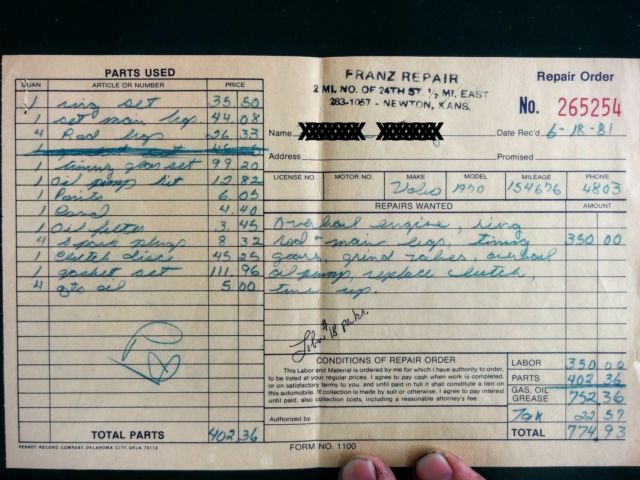 PARTS USED
QUAN. ARTICLE OR NUMBER PRICE
1 ring set 35.50
1 set main brg. 44.08
4 Rod brg 26.33
1 timing gear set 99 20
1 Oil pump kit 12 82
1 Points 6.05
1 Cond 4.40
1 Oil filter 3.45
4 spark plugs 8 32
1 clutch disc 45 25
1 gasket set 111.96
4 qts oil 5.00
TOTAL PARTS 402 36
PENNEY RECORD COMPANY, OKLAHOMA CITY, OKLA. 73112
FRANZ REPAIR
2 MI. NO. OF 24TH ST. 1/2 MI. EAST
283-1057 - NEWTON, KANS.
Repair Order
No. 265254
Name
Date Rec'd 6-18-81
Address Promised
LICENSE NO. MOTOR NO. MAKE MODEL MILEAGE PHONE
Volvo 1970 154676 4803
REPAIRS WANTED AMOUNT
Overhaul engine, ring
rod + main brgs, timing 350 00
gears, grind valves, overhaul
oil pump, replace clutch,
tune up.
Labor $18 per hr.
CONDITIONS OF REPAIR ORDER
This Labor and Material is ordered by me for which I have authority to order,
to be listed at your regular prices. I agree to pay cash when work is completed,
or on satisfactory terms to you, and until paid in full it shall constitute a lien on
this automobile. If collection be made by suit or otherwise, I agree to pay interest
until paid, also collection costs, including a reasonable attorney's fee.
Authorized by
LABOR 350.00
PARTS 402 36
GAS, OIL
GREASE 752 36
Tax 22 57
TOTAL 774 93
FORM NO. 1100